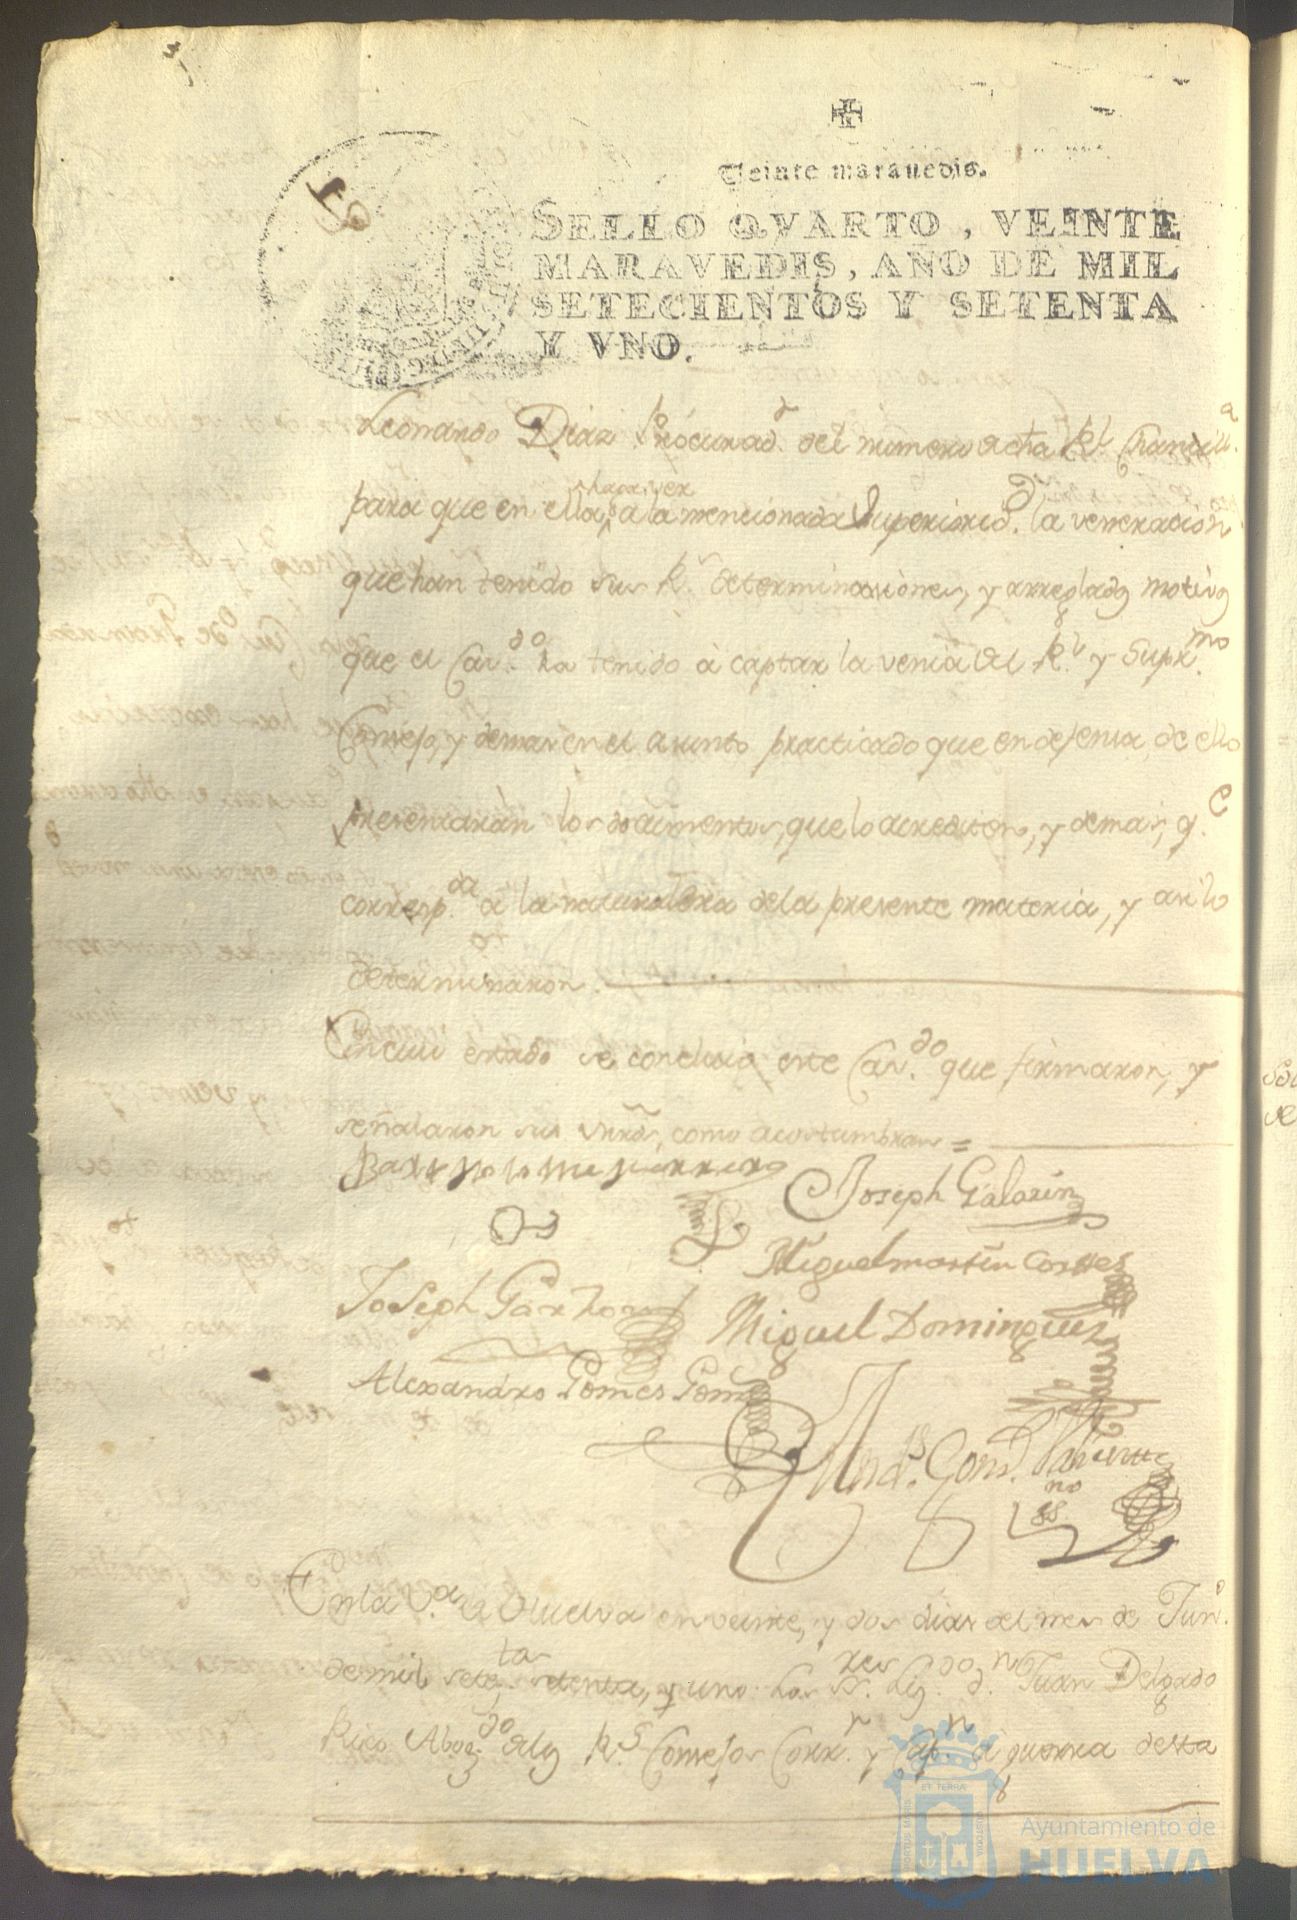 Veinte maravedis.
SELLO QVARTO, VEINTE
MARAVEDIS, AÑO DE MIL
SETECIENTOS Y SETENTA
Y VNO.
Leonardo Diaz Procurad.r del numero de esta R.l Chancill.a
para que en ella haga ver a la mencionada Superiorid.d la veneracion
que han tenido sus R.s determinaciones, y arreglados motivos
que el Cav.do ha tenido à captar la venia del R.l y Supr.mo
Consejo, y demas en el asunto practicado que en defensa de ello
presentaràn los documentos, que lo acrediten, y demas, q.e
corresp.da à la naturaleza de la presente materia, y asi lo
determinaron.
En cuio estado se concluió este Cav.do que firmaron, y
señalaron sus mrds, como acostumbran =
Bartholome
Joseph Galarin
Miguel martin Cortes
Joseph Garzon
Miguel Dominguez
Alexandro Gomes
And.s Gonz.
En la V.a de Huelva en veinte, y dos dias del mes de Jun.o
de mil sete.tos setenta, y uno los S.res Liz.do d.n Juan Delgado
Rico Abog.do de los R.s Consejos Corr.r y Cap.n à guerra desta
ET TERRA
Ayuntamiento de
HUELVA